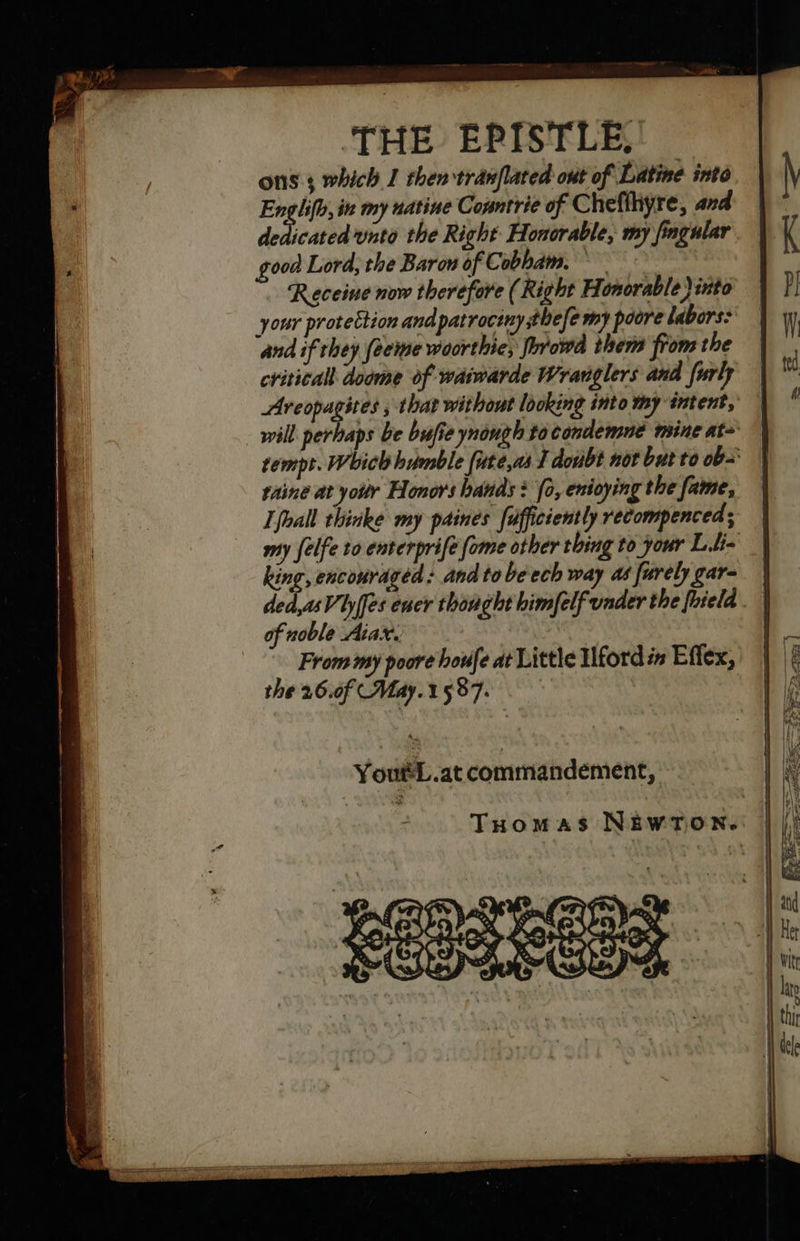 THE EPISTLE.
ons ; which I then tranſlated out of Latine into
Engliſh, in my natiue Countrie of Cheſſhyre, and
dedicated vnto the Right Honorable, my ſingular
good Lord, the Baron of Cobham.
Receiue now therefore (Right Honorable) into
your protection and patrociny theſe my poore labors:
and if they ſeeme woorthie, ſhrowd them from the
criticall doome of waiwarde Wranglers and ſurly
Areopagites ; that without looking into my intent,
will perhaps be buſie ynough to condemne mine at-
tempt. Which humble ſute, as I doubt not but to ob-
taine at your Honors hands : ſo, enioying the ſame,
I ſhall thinke my paines ſufficiently recompenced;
my ſelfe to enterpriſe ſome other thing to your L. li-
king, encouraged : and to be ech way as ſurely gar-
ded, as Vlyſſes euer thought himſelf vnder the ſhield
of noble Aiax.
From my poore houſe at Little Ilford in Eſſex,
the 26. of May. 1587.
Your L. at commandement,
THOMAS NEWTON.
ted
and
Her
thir
dele